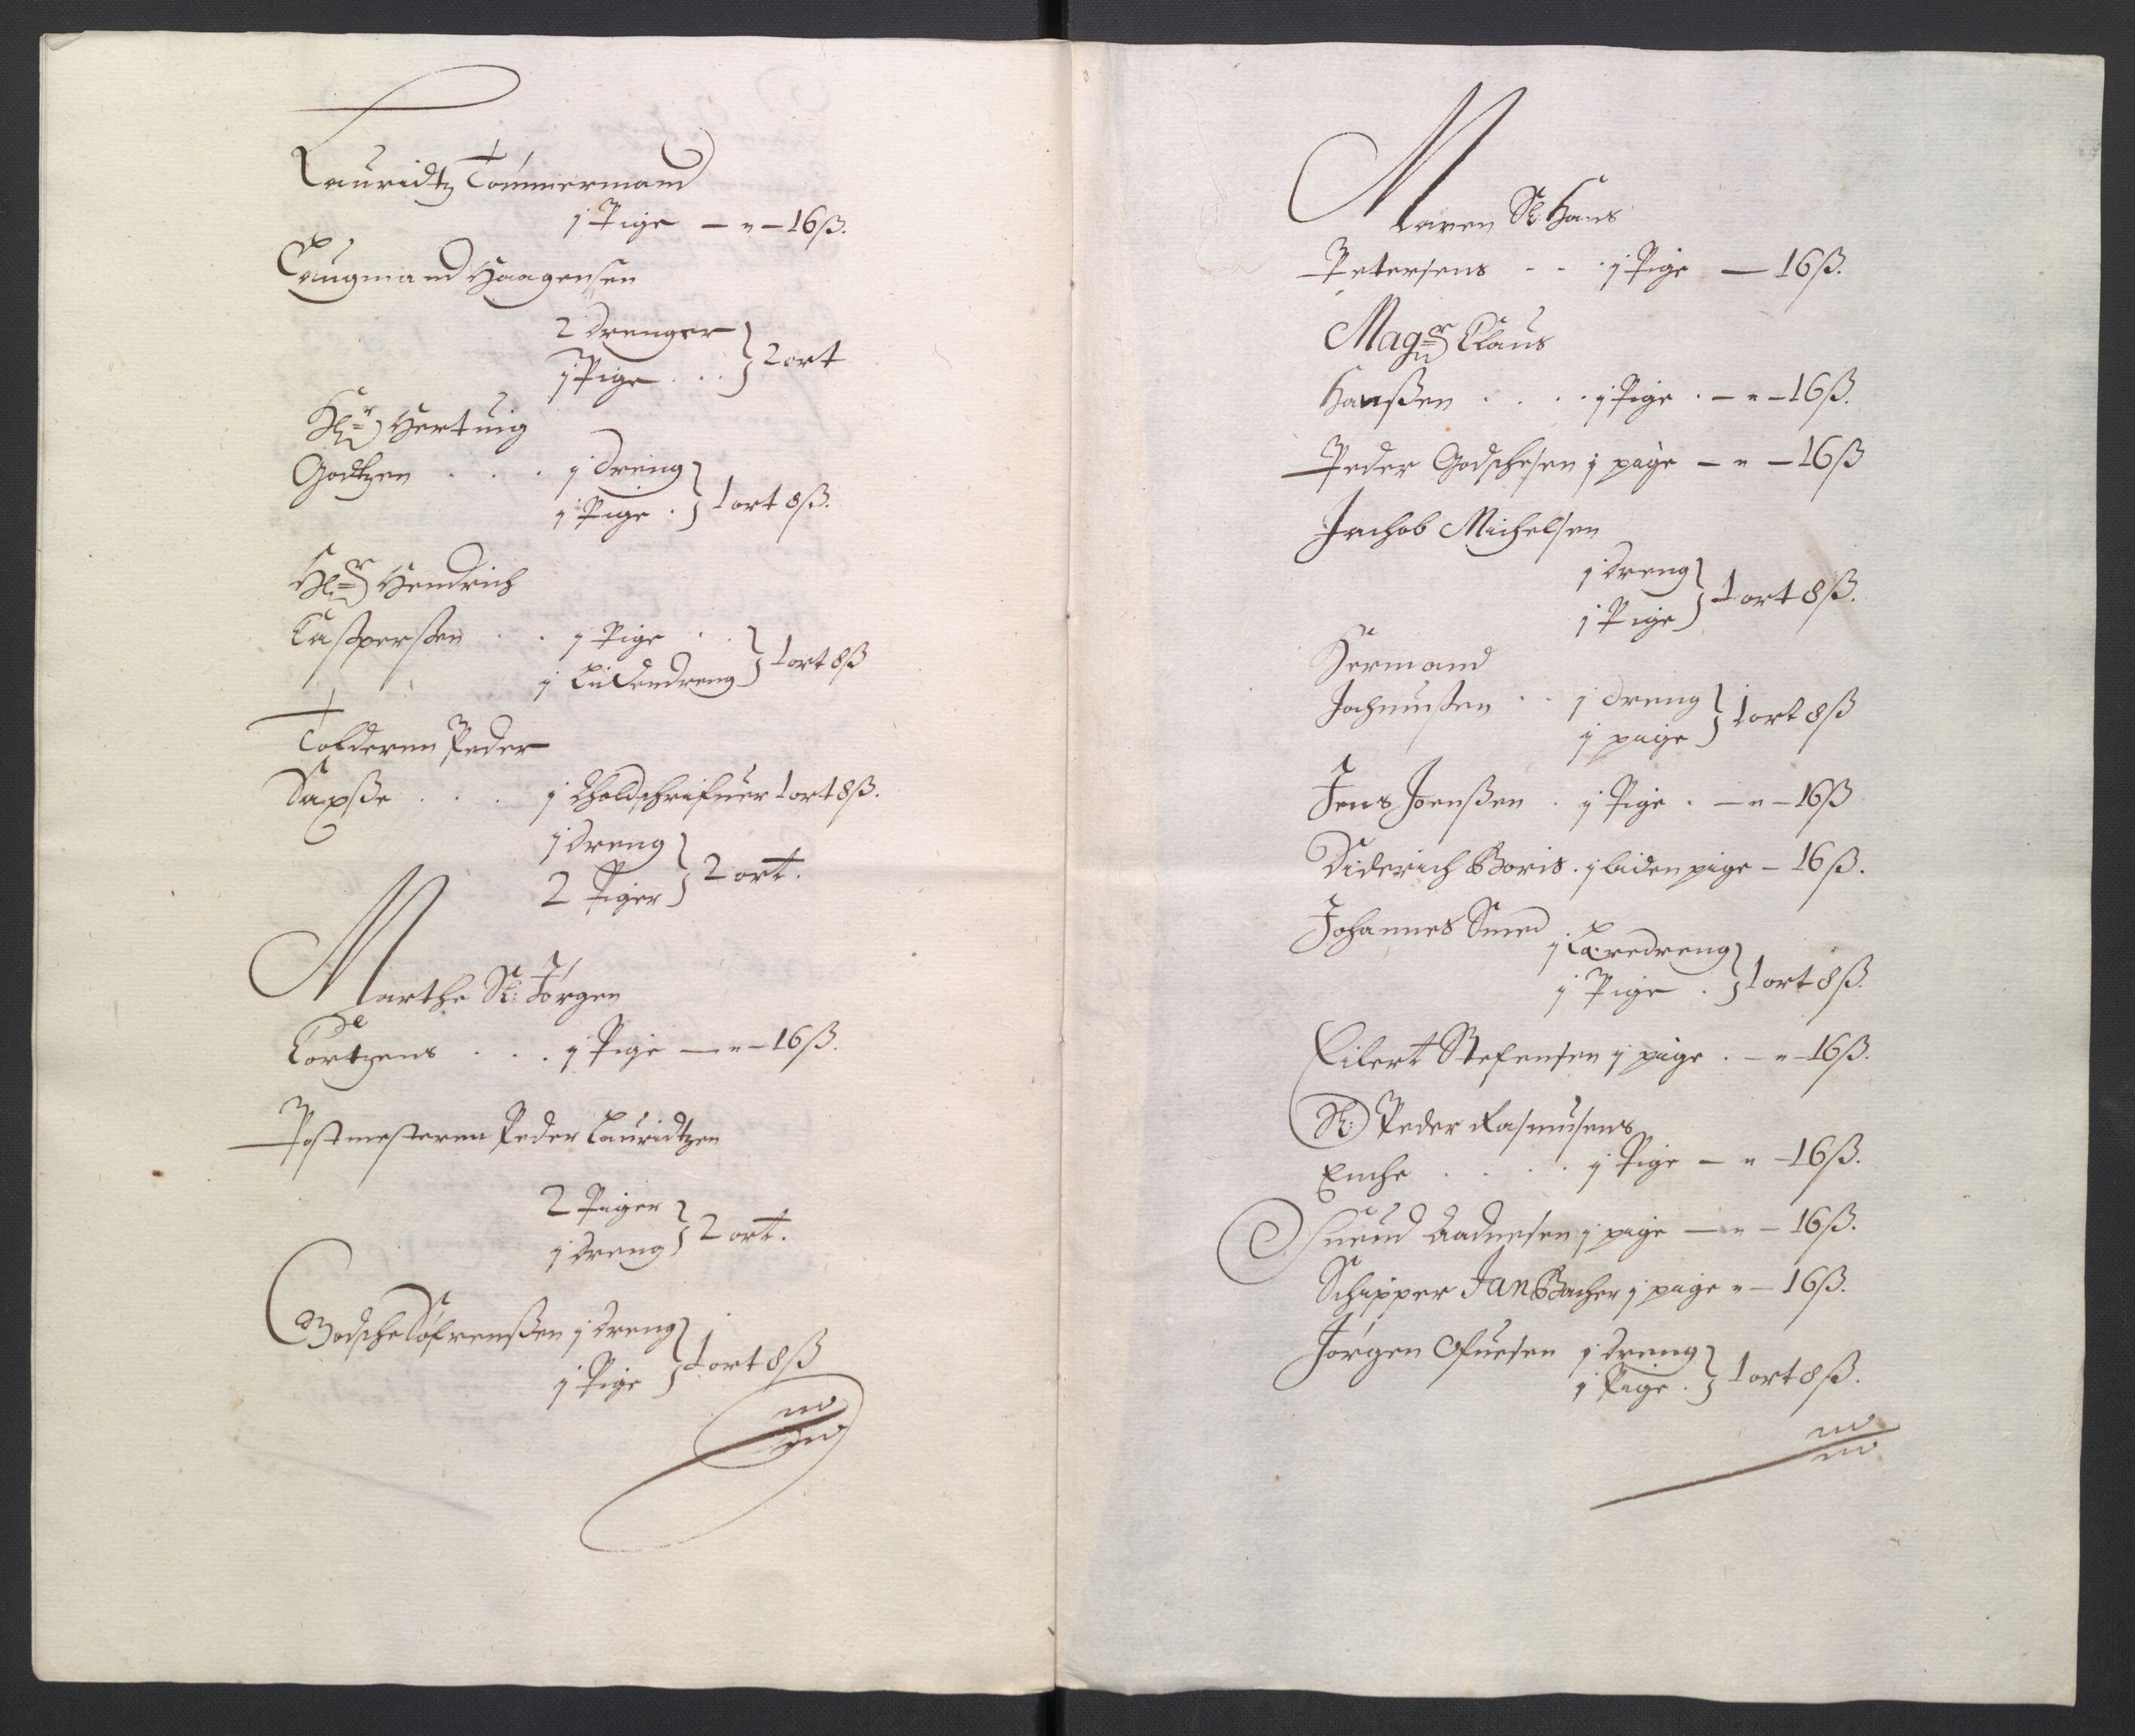 Lauridtz Tömmermand
1 Pige — „ — 16 ß.
Laugmand Haagensen
2 drenger
1 Pige . . . } 2 ort
Hr Hertuig
Godtzen . . . 1 dreng
1 Pige . } 1 ort 8 ß.
Hr Hendrich
Casperssen . . 1 Pige . .
1 Liidendreng } 1 ort 8 ß
Tolderen Peder
Saxsse . . . 1 Tholdschrifuer 1 ort 8 ß.
1 dreng
2 Piger } 2 ort.
Marthe Sl: Jörgen
Cortzens . . . 1 Pige — „ — 16 ß.
Postmesteren Peder Lauridtzen
2 Piger
1 dreng } 2 ort.
Godsche Söfrenssen 1 dreng
1 Pige } 1 ort 8 ß
Maren Sl: Hans
Petersens - - . 1 Pige — 16 ß.
Magr Claus
Hanssen . . . . 1 Pige . — „ — 16 ß.
Peder Godschesen 1 pige — „ — 16 ß
Jachob Michelsen
1 dreng
1 Pige } 1 ort 8 ß.
Hermand
Jochumssen . . 1 dreng
1 pige } 1 ort 8 ß
Jens Joenssen . 1 Pige . — „ — 16 ß
Diderich Boris . 1 liden pige — 16 ß.
Johannes Smed
1 Læredreng
1 Pige . } 1 ort 8 ß.
Eilert Stefensen 1 pige . — „ — 16 ß.
Sl: Peder Rasmusens
Enche . . . . 1 Pige — „ — 16 ß.
Suend Aadnesen 1 pige — „ — 16 ß.
Schipper Jan Bacher 1 pige „ — 16 ß.
Jörgen Ofuesen 1 dreng
1 Pige . } 1 ort 8 ß.